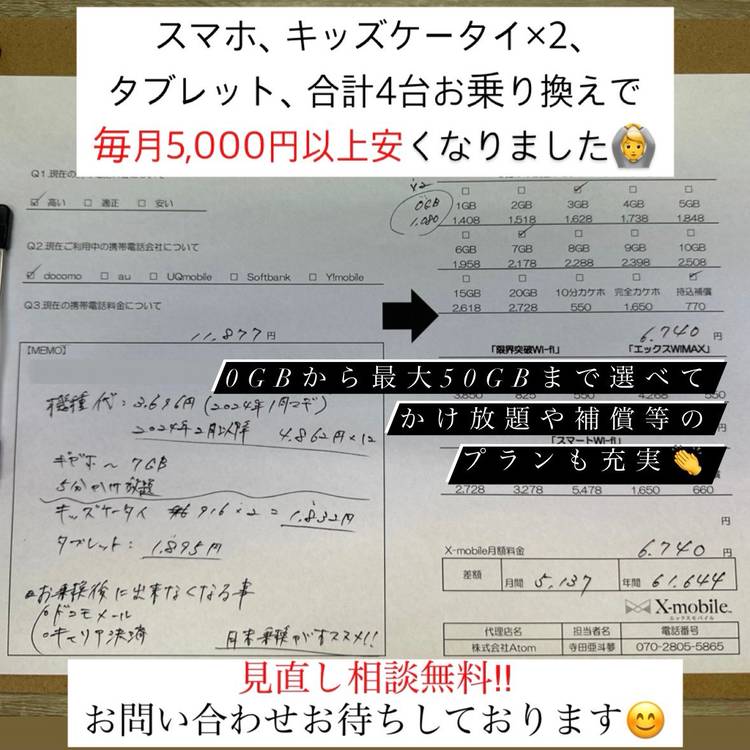 スマホ、キッズケータイ×2、
タブレット、合計4台お乗り換えで
毎月5,000円以上安くなりました🙆
☑ 高い □ 適正 □ 安い
Q2.現在ご利用中の携帯電話会社について
☑ docomo □ au □ UQmobile □ Softbank □ Y!mobile
Q3.現在の携帯電話料金について
11,877 円
【MEMO】
機種代：3.696円(2024年1月マデ)
2024年2月以降 4.862円×12
ギガホ〜7GB
5分かけ放題
キッズケータイ 916×2=1,832円
タブレット：1,895円
お乗換後に出来なくなる事
ドコモメール
キャリア決済
月末乗換がオススメ!!
×2
0GB
1,080
1GB 2GB 3GB 4GB 5GB
1,408 1,518 1,628 1,738 1,848
6GB 7GB 8GB 9GB 10GB
1,958 2,178 2,288 2,398 2,508
15GB 20GB 10分カケホ 完全カケホ 持込補償
2,618 2,728 550 1,650 770
6,740 円
「限界突破Wi-fi」 「エックスWiMAX」
0GBから最大50GBまで選べて
かけ放題や補償等の
プランも充実👏
「スマートWi-fi」
2,728 3,278 5,478 1,650 660
円
X-mobile月額料金 6,740 円
差額 月間 5,137 年間 61,644
X-mobile
エックスモバイル
代理店名 担当者名 電話番号
株式会社Atom 寺田亜斗夢 070-2805-5865
見直し相談無料‼
お問い合わせお待ちしております😊